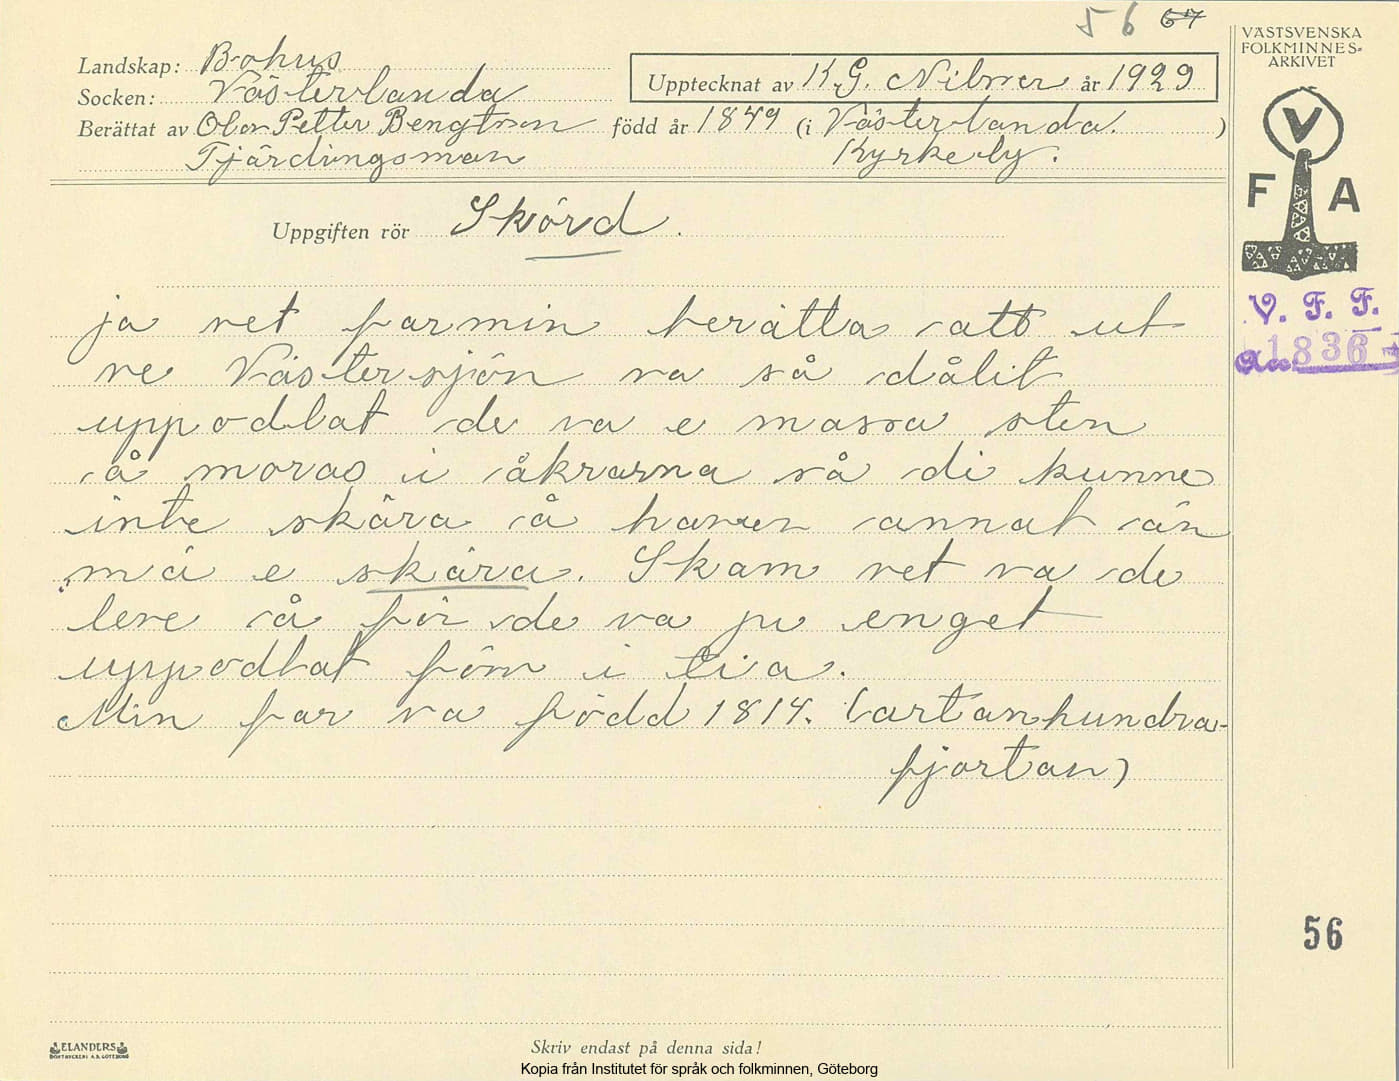 56 67
VÄSTSVENSKA
FOLKMINNES-
ARKIVET
Landskap: Bohus
Socken: Västerlanda
Upptecknat av K.G. Nilsson år 1929
Berättat av Olov Petter Bengtson född år 1849 (i Västerlanda.)
Fjärdingsman Kyrkeby.
V
F A
Uppgiften rör Skörd.
ja vet far min berätta att ut
ve Västersjön va så dålit
uppodlat de va e massa sten
å moras i åkrarna så di kunne
inte skära å haven annat än
mä e skära. Skam vet va de
leve å för de va ju enget
uppodlat föm i tia.
Min far va född 1814. (artanhundra-
fjortan)
V. F. F.
Acc. 1836
56
ELANDERS
BOKTRYCKERI A.B. GÖTEBORG
Skriv endast på denna sida!
Kopia från Institutet för språk och folkminnen, Göteborg